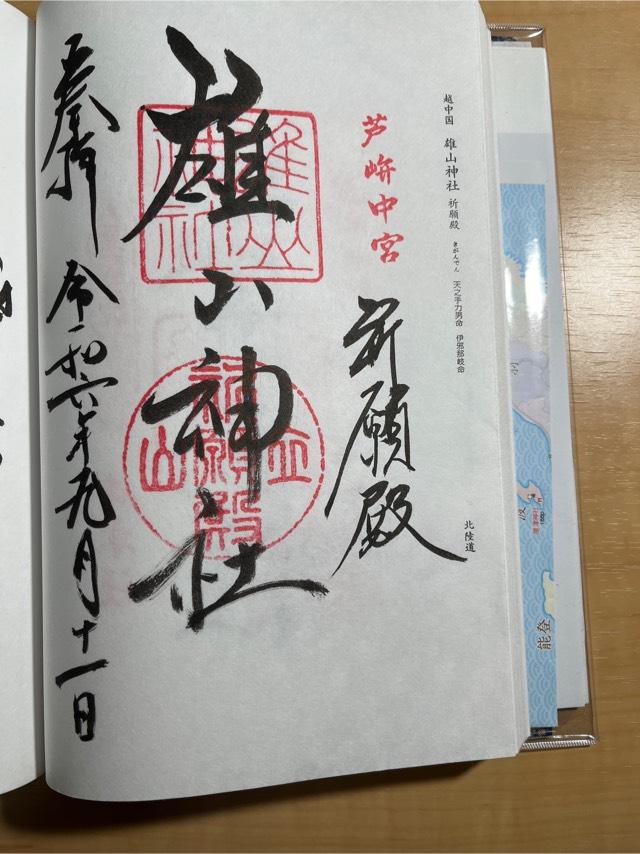 越中国 雄山神社 祈願殿 きがんでん 天之手力男命 伊邪那岐命
北陸道
芦峅中宮
祈願殿
雄山神社
雄山神社
立山
祈願殿
奉拝 令和六年九月十一日
能登